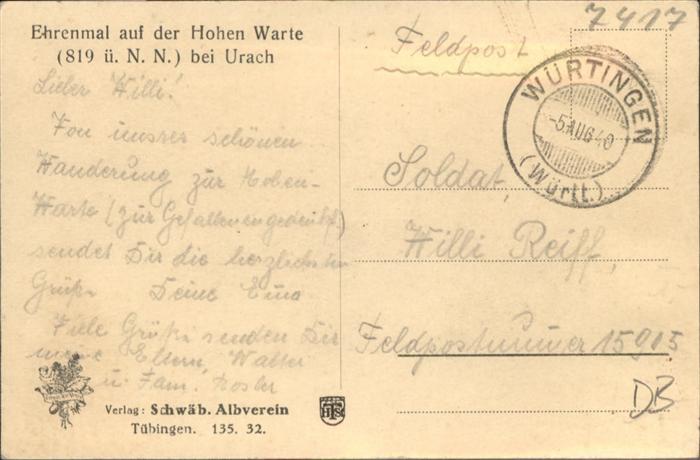 Ehrenmal auf der Hohen Warte
(819 ü. N. N.) bei Urach
Lieber Willi!
Von unsrer schönen
Wanderung zur Hohen-
Warte (zur Gefallenengedenkf.)
sendet Dir die herzlichsten
Grüße Deine
Viele Grüße senden Dir
meine Eltern, Walter
u. Fam.
Verlag: Schwäb. Albverein
Tübingen. 135. 32.
7417
Feldpost
WÜRTINGEN
-5.AUG 40
(Württ.)
Soldat,
Willi Reiff,
Feldpostnummer 15915
DB